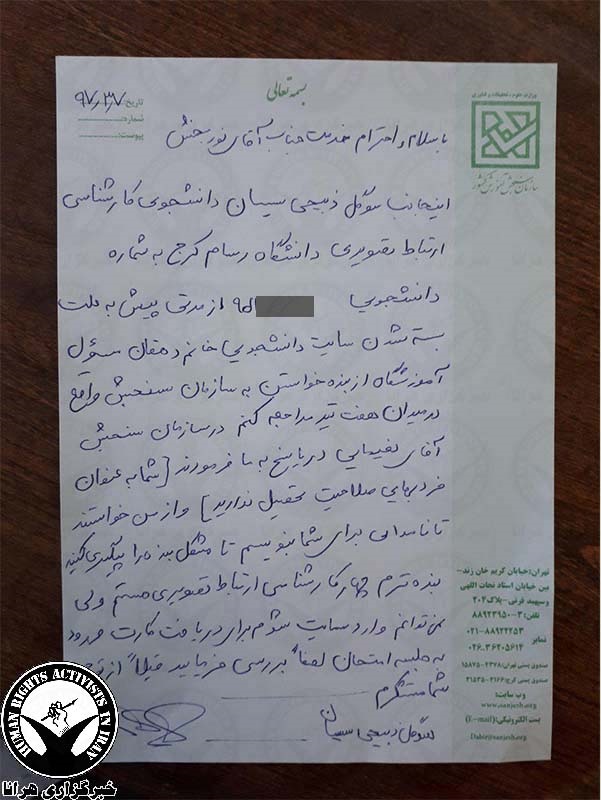 بسمه تعالی
وزارت علوم، تحقیقات و فناوری
سازمان سنجش آموزش کشور
تاریخ: ۹۷٫۳٫۷
شماره:
پیوست:
با سلام و احترام خدمت جناب آقای نوربخش
اینجانب سوگل ذبیحی سیسان دانشجوی کارشناسی
ارتباط تصویری دانشگاه رسام کرج به شماره
دانشجویی ۹۵۱ از مدتی پیش به علت
بسته شدن سایت دانشجویی خانم دهقان مسؤل
آموزشگاه از بنده خواستن به سازمان سنجش واقع
در میدان هفت تیر مراجعه کنم در سازمان سنجش
آقای نعیمایی در پاسخ به ما فرمودند [شما به عنوان
فرد بهایی صلاحیت تحصیل ندارید] و از من خواستند
تا نامه‌ایی برای شما بنویسم تا مشکل بنده را پیگیری کنید
بنده ترم چهار کارشناسی ارتباط تصویری هستم ولی
نمی‌توانم وارد سایت شوم برای دریافت کارت ورود
به جلسه امتحان لطفاً بررسی فرمایید قبلاً از
شما متشکرم
سوگل ذبیحی سیسان
تهران: خیابان کریم خان زند-
بین خیابان استاد نجات اللهی
و سپهبد قرنی-پلاک ۲۰۴
تلفن: ۳-۸۸۹۲۳۹۵۰
نمابر
۰۲۱-۸۸۹۲۲۲۵۳
۰۲۶-۳۶۲۰۵۶۱۴
صندوق پستی تهران: ۴۳۷۸-۱۵۸۷۵
صندوق پستی کرج: ۳۱۶۶-۳۱۵۳۵
وب سایت:
www.sanjesh.org
پست الکترونیکی: (E-mail)
Dabir@sanjesh.org
HUMAN RIGHTS ACTIVISTS IN IRAN
خبرگزاری هرانا